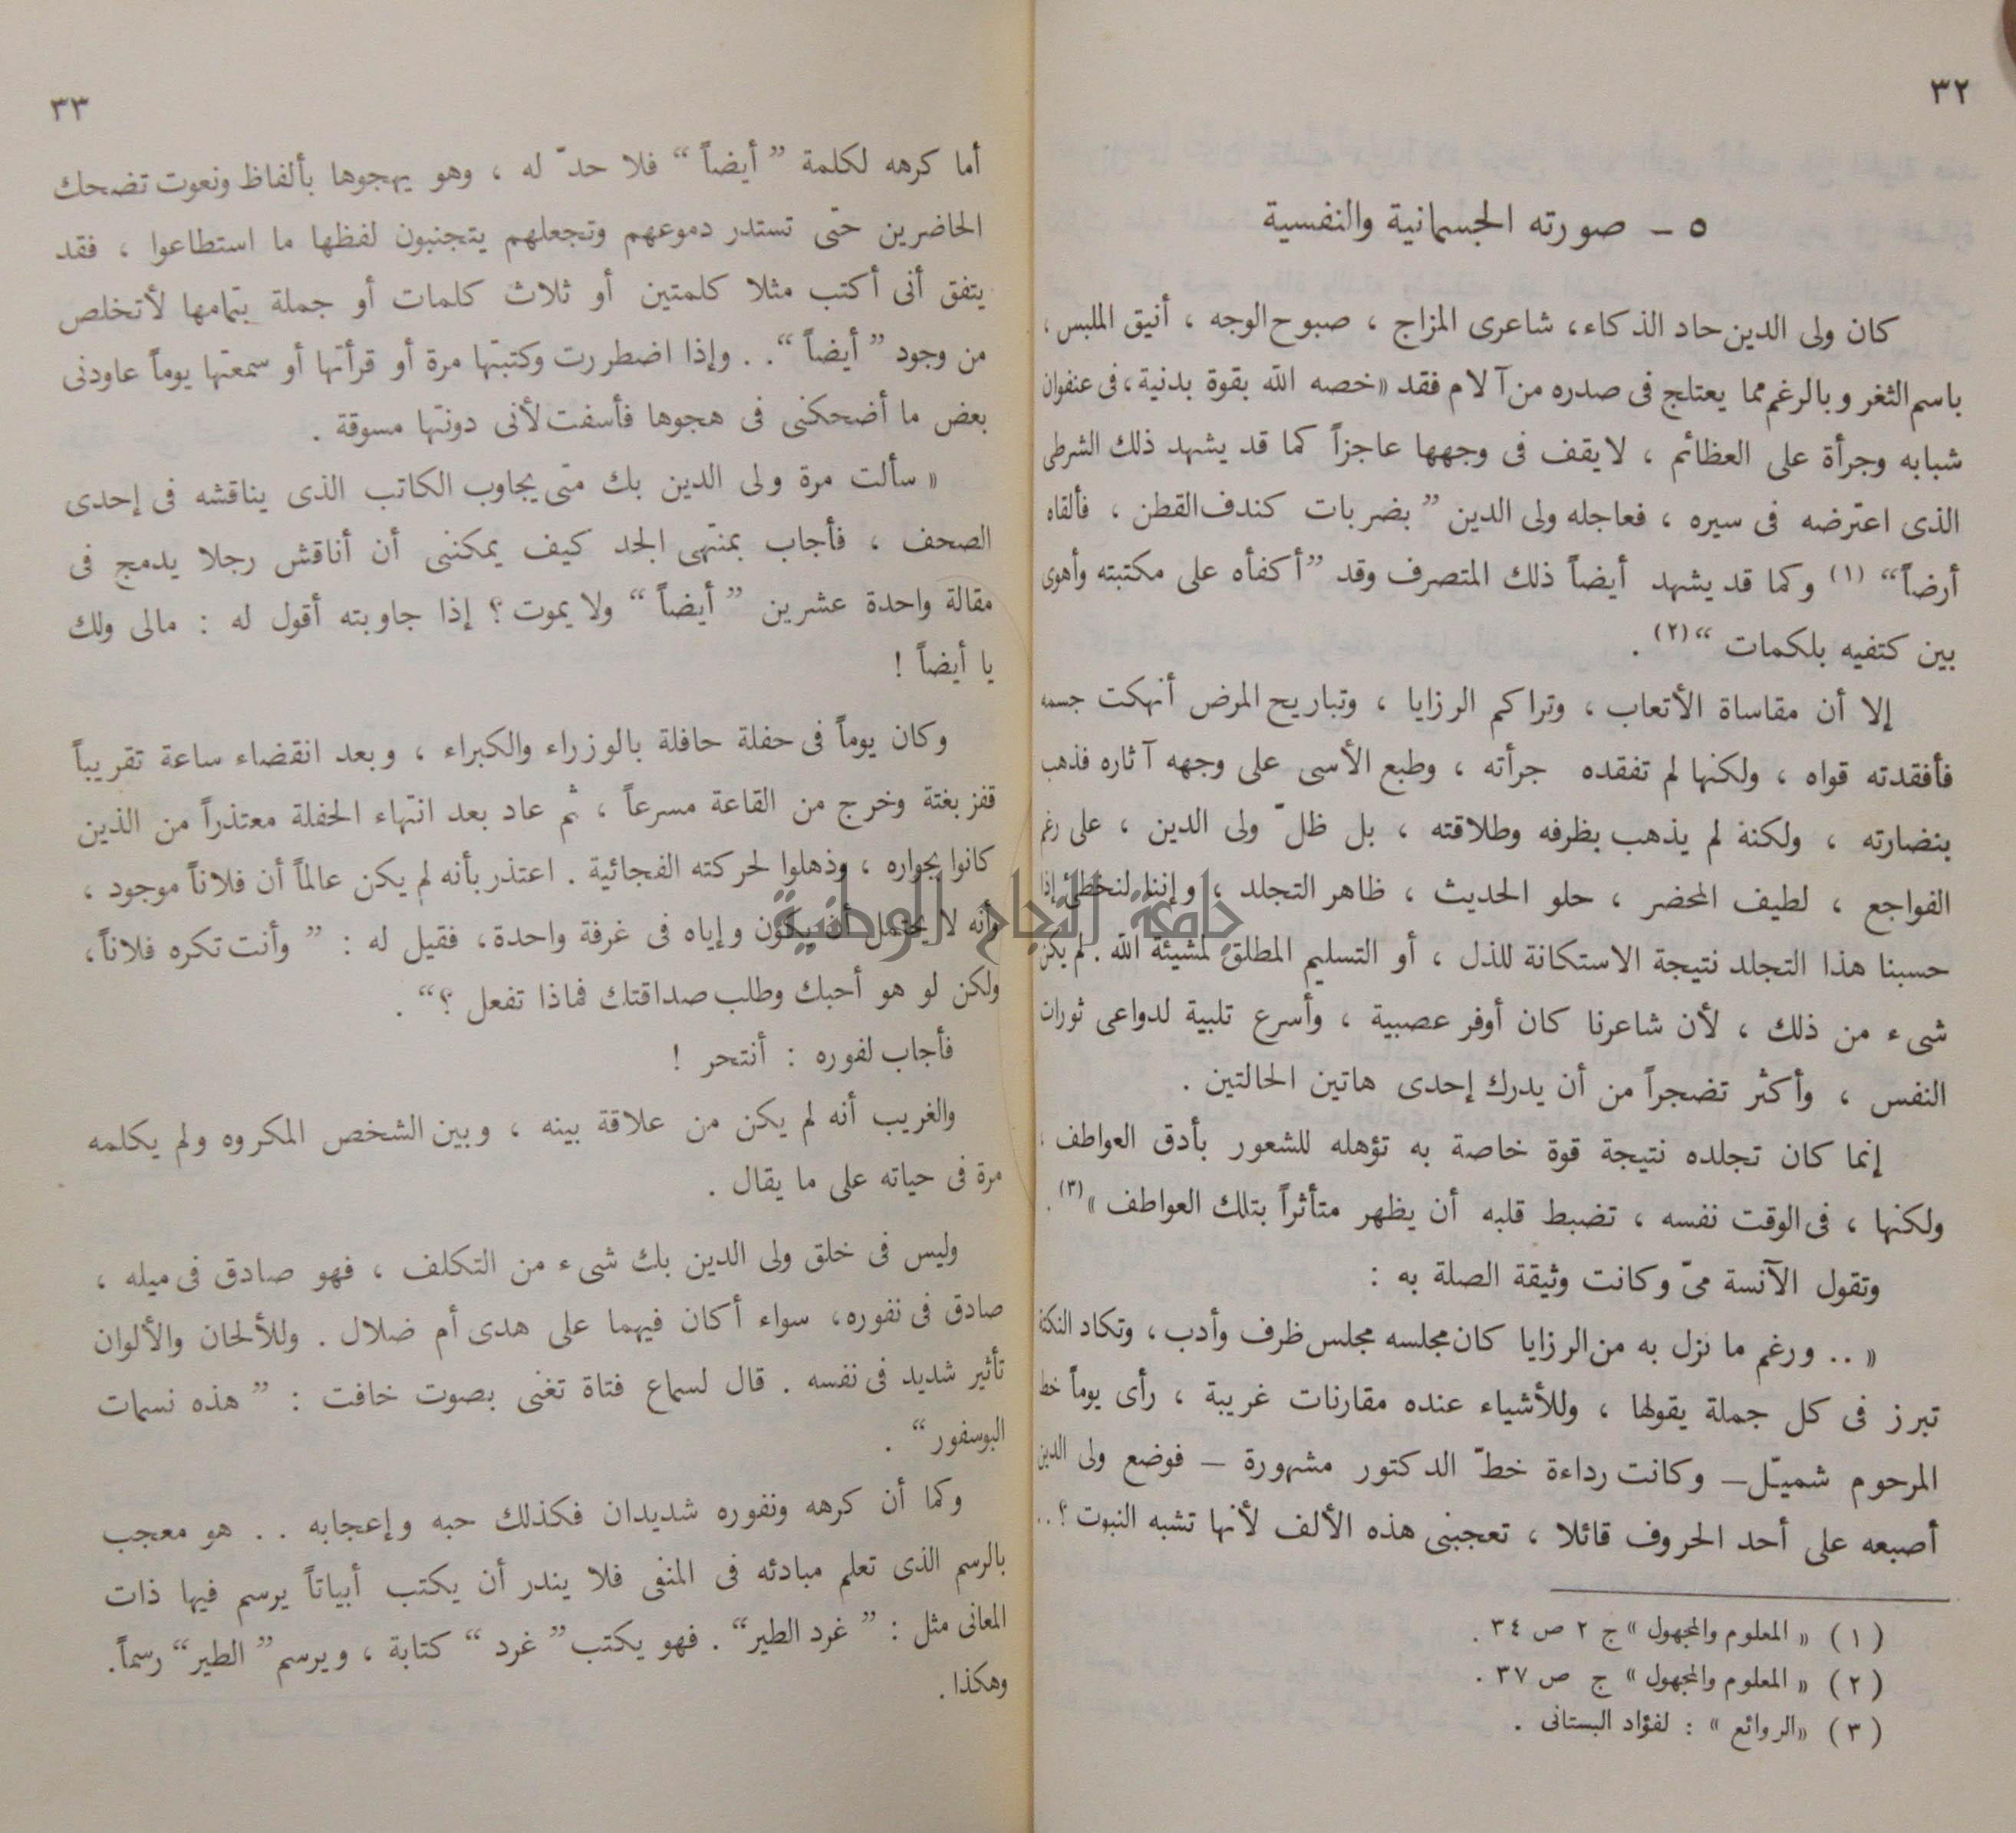 ٣٢
٥ – صورته الجسمانية والنفسية
كان ولى الدين حاد الذكاء، شاعرى المزاج ، صبوح الوجه ، أنيق الملبس ،
باسم الثغر وبالرغم مما يعتلج فى صدره من آلام فقد «خصه الله بقوة بدنية، فى عنفوان
شبابه وجرأة على العظائم ، لا يقف فى وجهها عاجزاً كما قد يشهد ذلك الشرطى
الذى اعترضه فى سيره ، فعاجله ولى الدين ”بضربات كندف القطن ، فألقاه
أرضاً“ (١) وكما قد يشهد أيضاً ذلك المتصرف وقد ”أكفأه على مكتبته وأهوى
بين كتفيه بلكمات “(٢) .
إلا أن مقاساة الأتعاب ، وتراكم الرزايا ، وتباريح المرض أنهكت جسمه
فأفقدته قواه ، ولكنها لم تفقده جرأته ، وطبع الأسى على وجهه آثاره فذهب
بنضارته ، ولكنه لم يذهب بظرفه وطلاقته ، بل ظلّ ولى الدين ، على رغم
الفواجع ، لطيف المحضر ، حلو الحديث ، ظاهر التجلد ، وإننا لنخطئ إذا
حسبنا هذا التجلد نتيجة الاستكانة للذل ، أو التسليم المطلق لمشيئة الله . لم يكن
شىء من ذلك ، لأن شاعرنا كان أوفر عصبية ، وأسرع تلبية لدواعى ثورات
النفس ، وأكثر تضجراً من أن يدرك إحدى هاتين الحالتين .
إنما كان تجلده نتيجة قوة خاصة به تؤهله للشعور بأدق العواطف ،
ولكنها ، فى الوقت نفسه ، تضبط قلبه أن يظهر متأثراً بتلك العواطف »(٣) .
وتقول الآنسة مىّ وكانت وثيقة الصلة به :
« .. ورغم ما نزل به من الرزايا كان مجلسه مجلس ظرف وأدب ، وتكاد النكتة
تبرز فى كل جملة يقولها ، وللأشياء عنده مقارنات غريبة ، رأى يوماً خط
المرحوم شميّل – وكانت رداءة خطّ الدكتور مشهورة – فوضع ولى الدين
أصبعه على أحد الحروف قائلا ، تعجبنى هذه الألف لأنها تشبه النبوت ؟ ..
(١) « المعلوم والمجهول » ج ٢ ص ٣٤ .
(٢) « المعلوم والمجهول » ج ص ٣٧ .
(٣) «الروائع » : لفؤاد البستانى .
٣٣
أما كرهه لكلمة ” أيضاً “ فلا حدّ له ، وهو يهجوها بألفاظ ونعوت تضحك
الحاضرين حتى تستدر دموعهم وتجعلهم يتجنبون لفظها ما استطاعوا ، فقد
يتفق أنى أكتب مثلا كلمتين أو ثلاث كلمات أو جملة بتمامها لأتخلص
من وجود ” أيضاً “. . وإذا اضطررت وكتبتها مرة أو قرأتها أو سمعتها يوماً عاودنى
بعض ما أضحكنى فى هجوها فأسفت لأنى دونتها مسوقة .
« سألت مرة ولى الدين بك متى يجاوب الكاتب الذى يناقشه فى إحدى
الصحف ، فأجاب بمنتهى الجد كيف يمكننى أن أناقش رجلا يدمج فى
مقالة واحدة عشرين ” أيضاً “ ولا يموت ؟ إذا جاوبته أقول له : مالى ولك
يا أيضاً !
وكان يوماً فى حفلة حافلة بالوزراء والكبراء ، وبعد انقضاء ساعة تقريباً
قفز بغتة وخرج من القاعة مسرعاً ، ثم عاد بعد انتهاء الحفلة معتذراً من الذين
كانوا بجواره ، وذهلوا لحركته الفجائية . اعتذر بأنه لم يكن عالماً أن فلاناً موجود ،
وأنه لا يحتمل أن يكون وإياه فى غرفة واحدة، فقيل له : ” وأنت تكره فلاناً،
ولكن لو هو أحبك وطلب صداقتك فماذا تفعل ؟“ .
فأجاب لفوره : أنتحر !
والغريب أنه لم يكن من علاقة بينه ، وبين الشخص المكروه ولم يكلمه
مرة فى حياته على ما يقال .
وليس فى خلق ولى الدين بك شىء من التكلف ، فهو صادق فى ميله ،
صادق فى نفوره، سواء أكان فيهما على هدى أم ضلال . وللألحان والألوان
تأثير شديد فى نفسه . قال لسماع فتاة تغنى بصوت خافت : ” هذه نسمات
البوسفور“ .
وكما أن كرهه ونفوره شديدان فكذلك حبه وإعجابه . . هو معجب
بالرسم الذى تعلم مبادئه فى المنفى فلا يندر أن يكتب أبياتاً يرسم فيها ذات
المعانى مثل : ” غرد الطير“ . فهو يكتب ” غرد “ كتابة ، ويرسم ” الطير“ رسماً.
وهكذا .
جامعة النجاح الوطنية